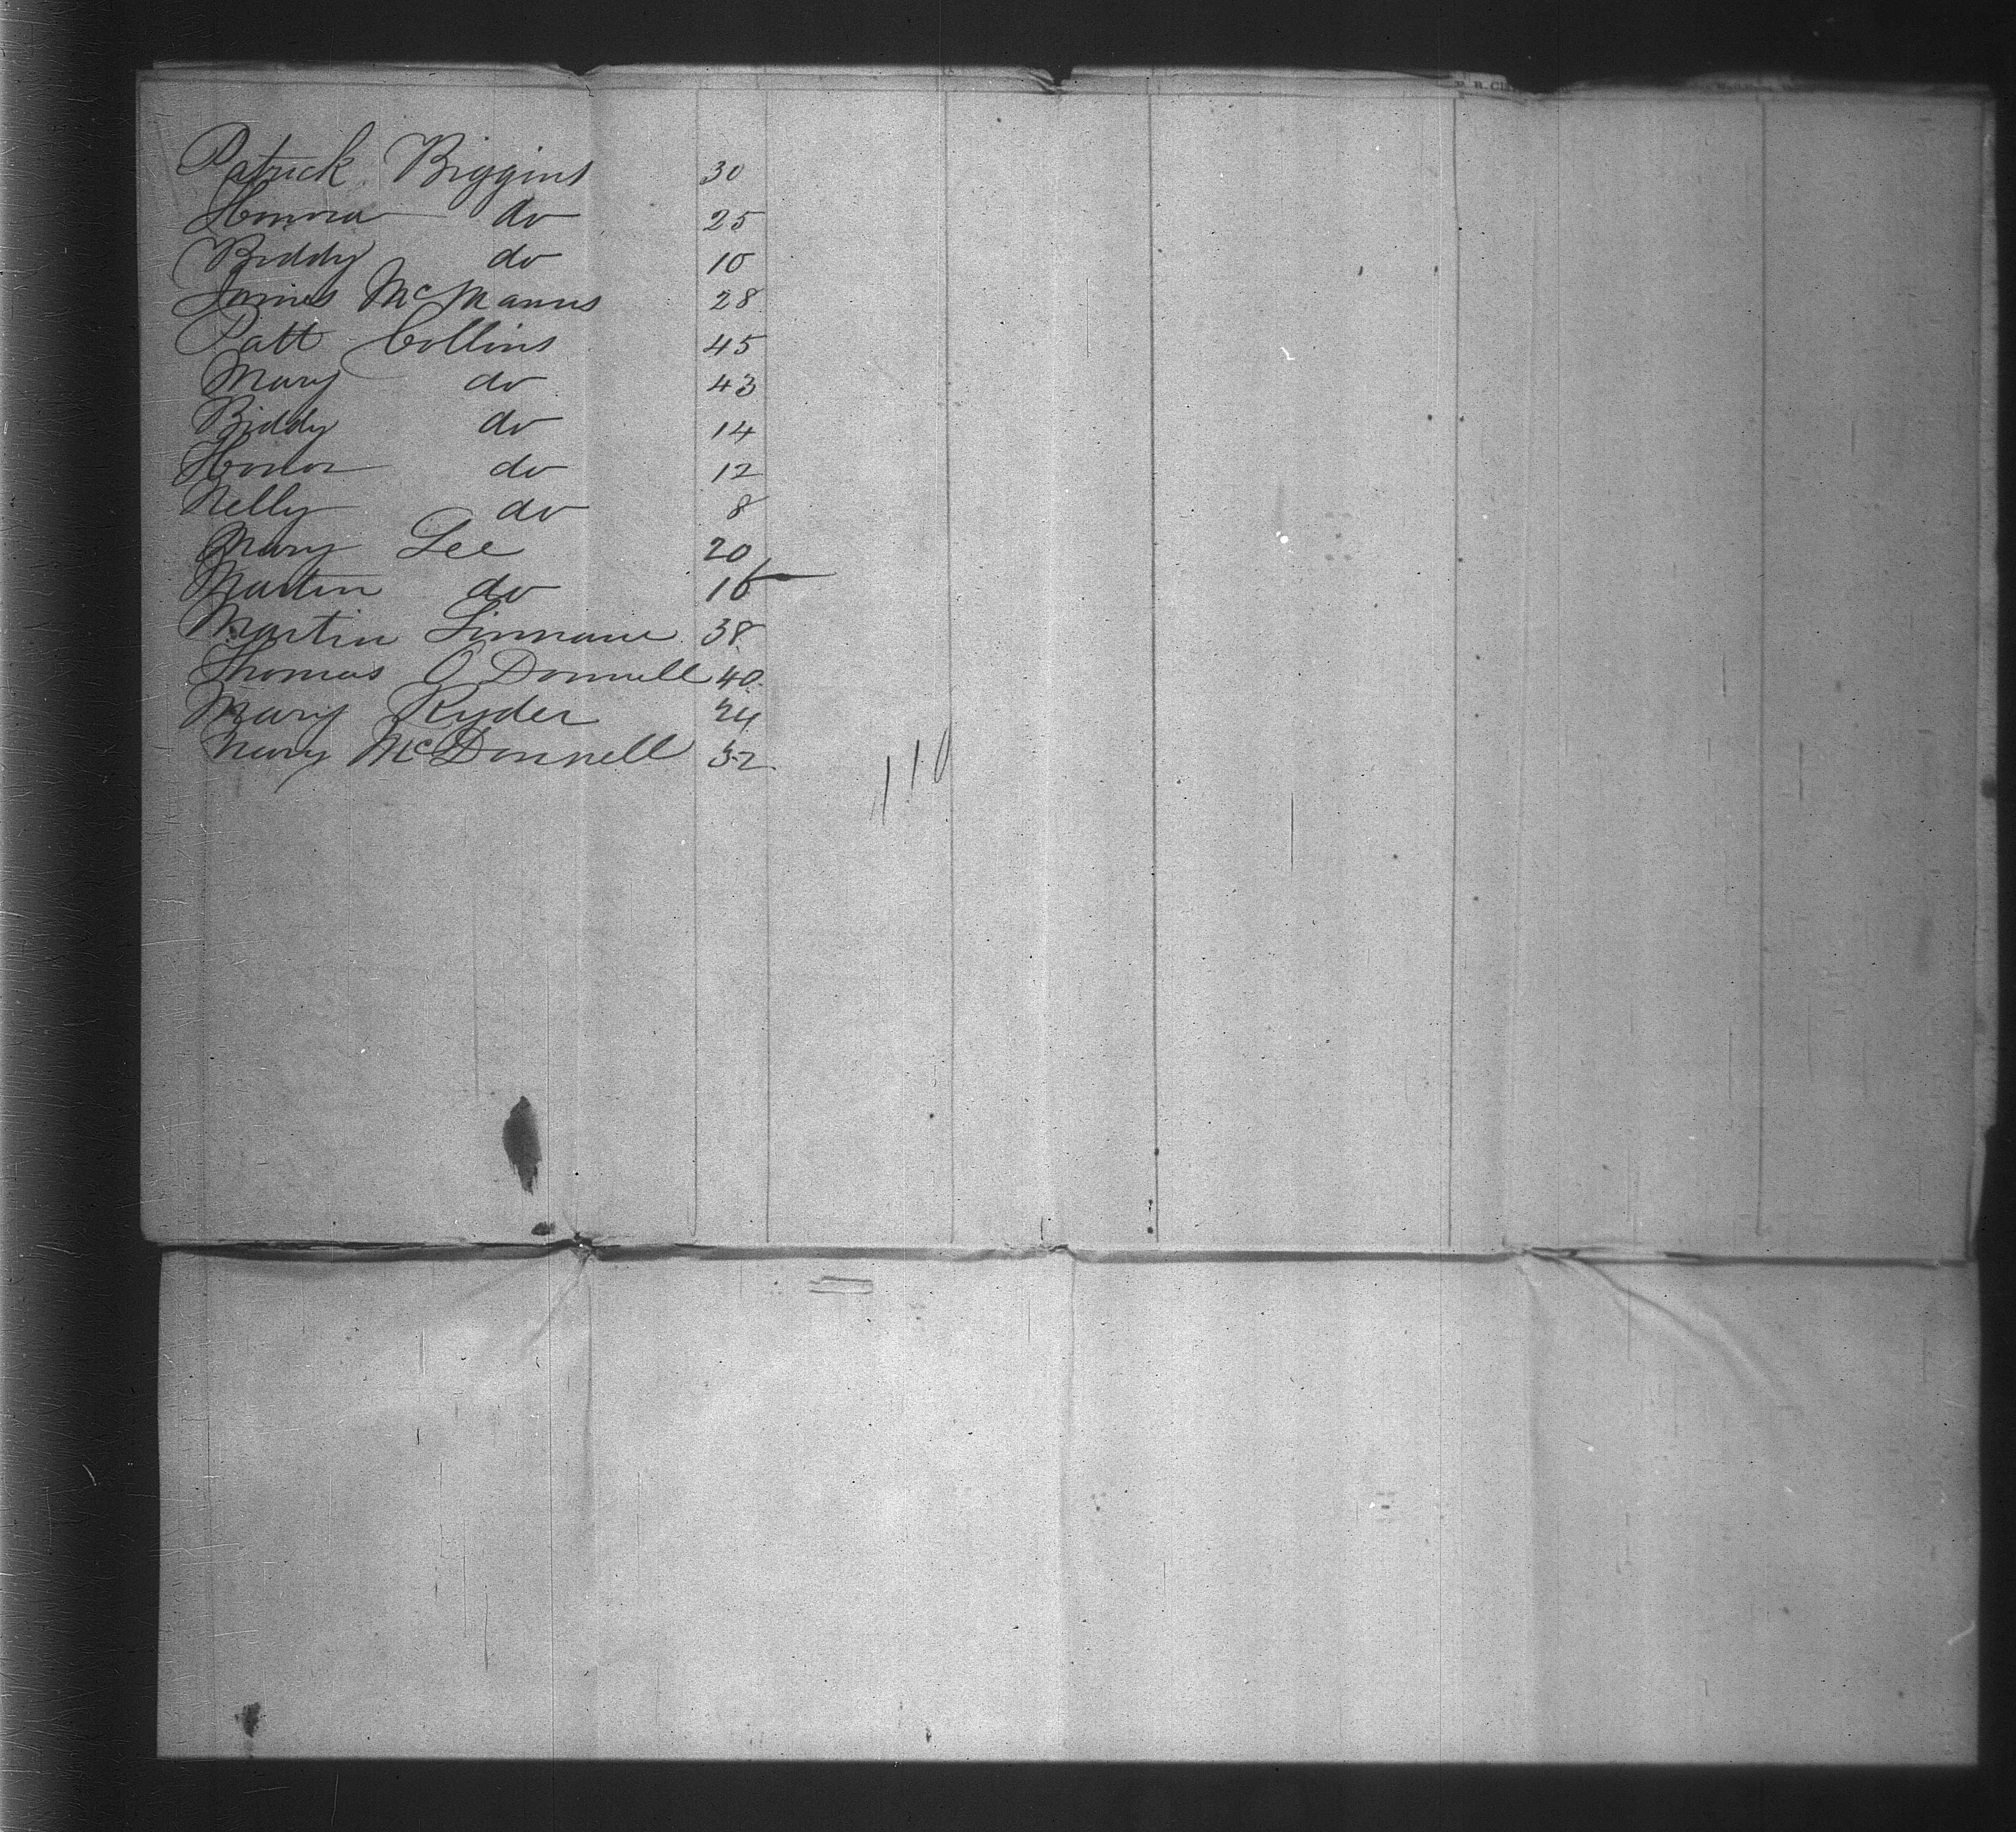 Patrick Biggins 30
Honora do 25
Biddy do 10
James McManus 28
Patt Collins 45
Mary do 43
Biddy do 14
Honor do 12
Nelly do 8
Mary Lee 20
Martin do 16
Martin Linnane 38
Thomas O Donnell 40
Mary Ryder 24
Mary McDonnell 32
110